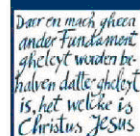 Daer en mach gheen
ander Fundament
gheleyt worden be-
halven datte gheleyt
is, het welcke is
Christus Jesus